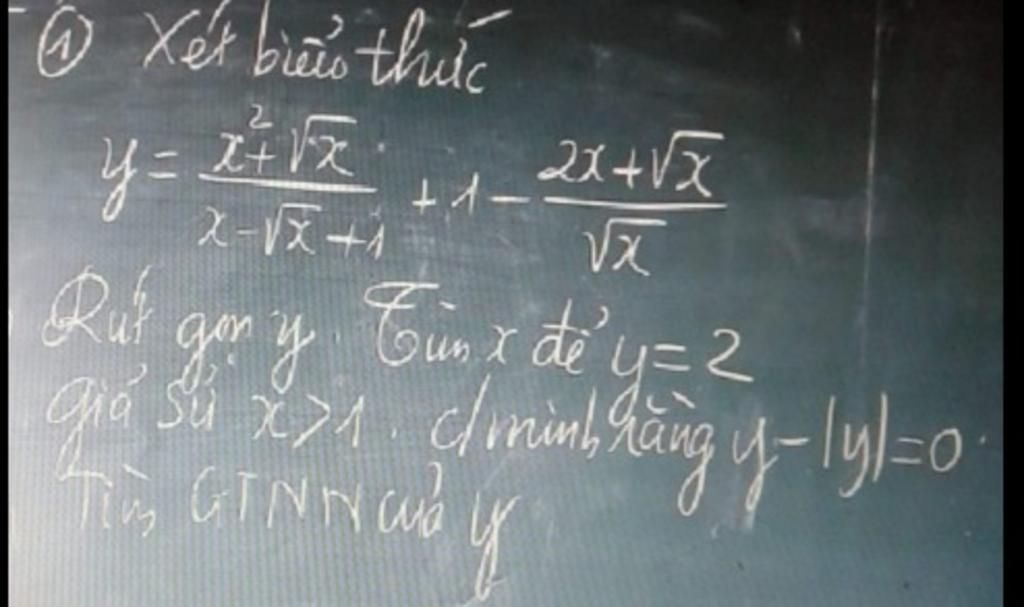 ① Xét biểu thức
y = \frac{x^2+\sqrt{x}}{x-\sqrt{x}+1} + 1 - \frac{2x+\sqrt{x}}{\sqrt{x}}
Rút gọn y. Tìm x để y = 2
Giả sử x > 1. c/minh rằng y - |y| = 0.
Tìm GTNN của y